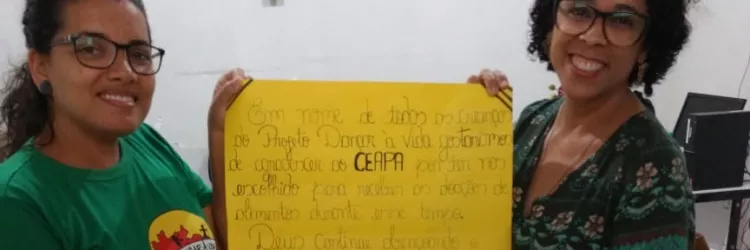 Em nome de todas as crianças
do Projeto Dançar à Vida gostaríamos
de agradecer ao CEAPA por ter nos
escolhido para receber as doações de
alimentos durante esse tempo.
Deus continue abençoando